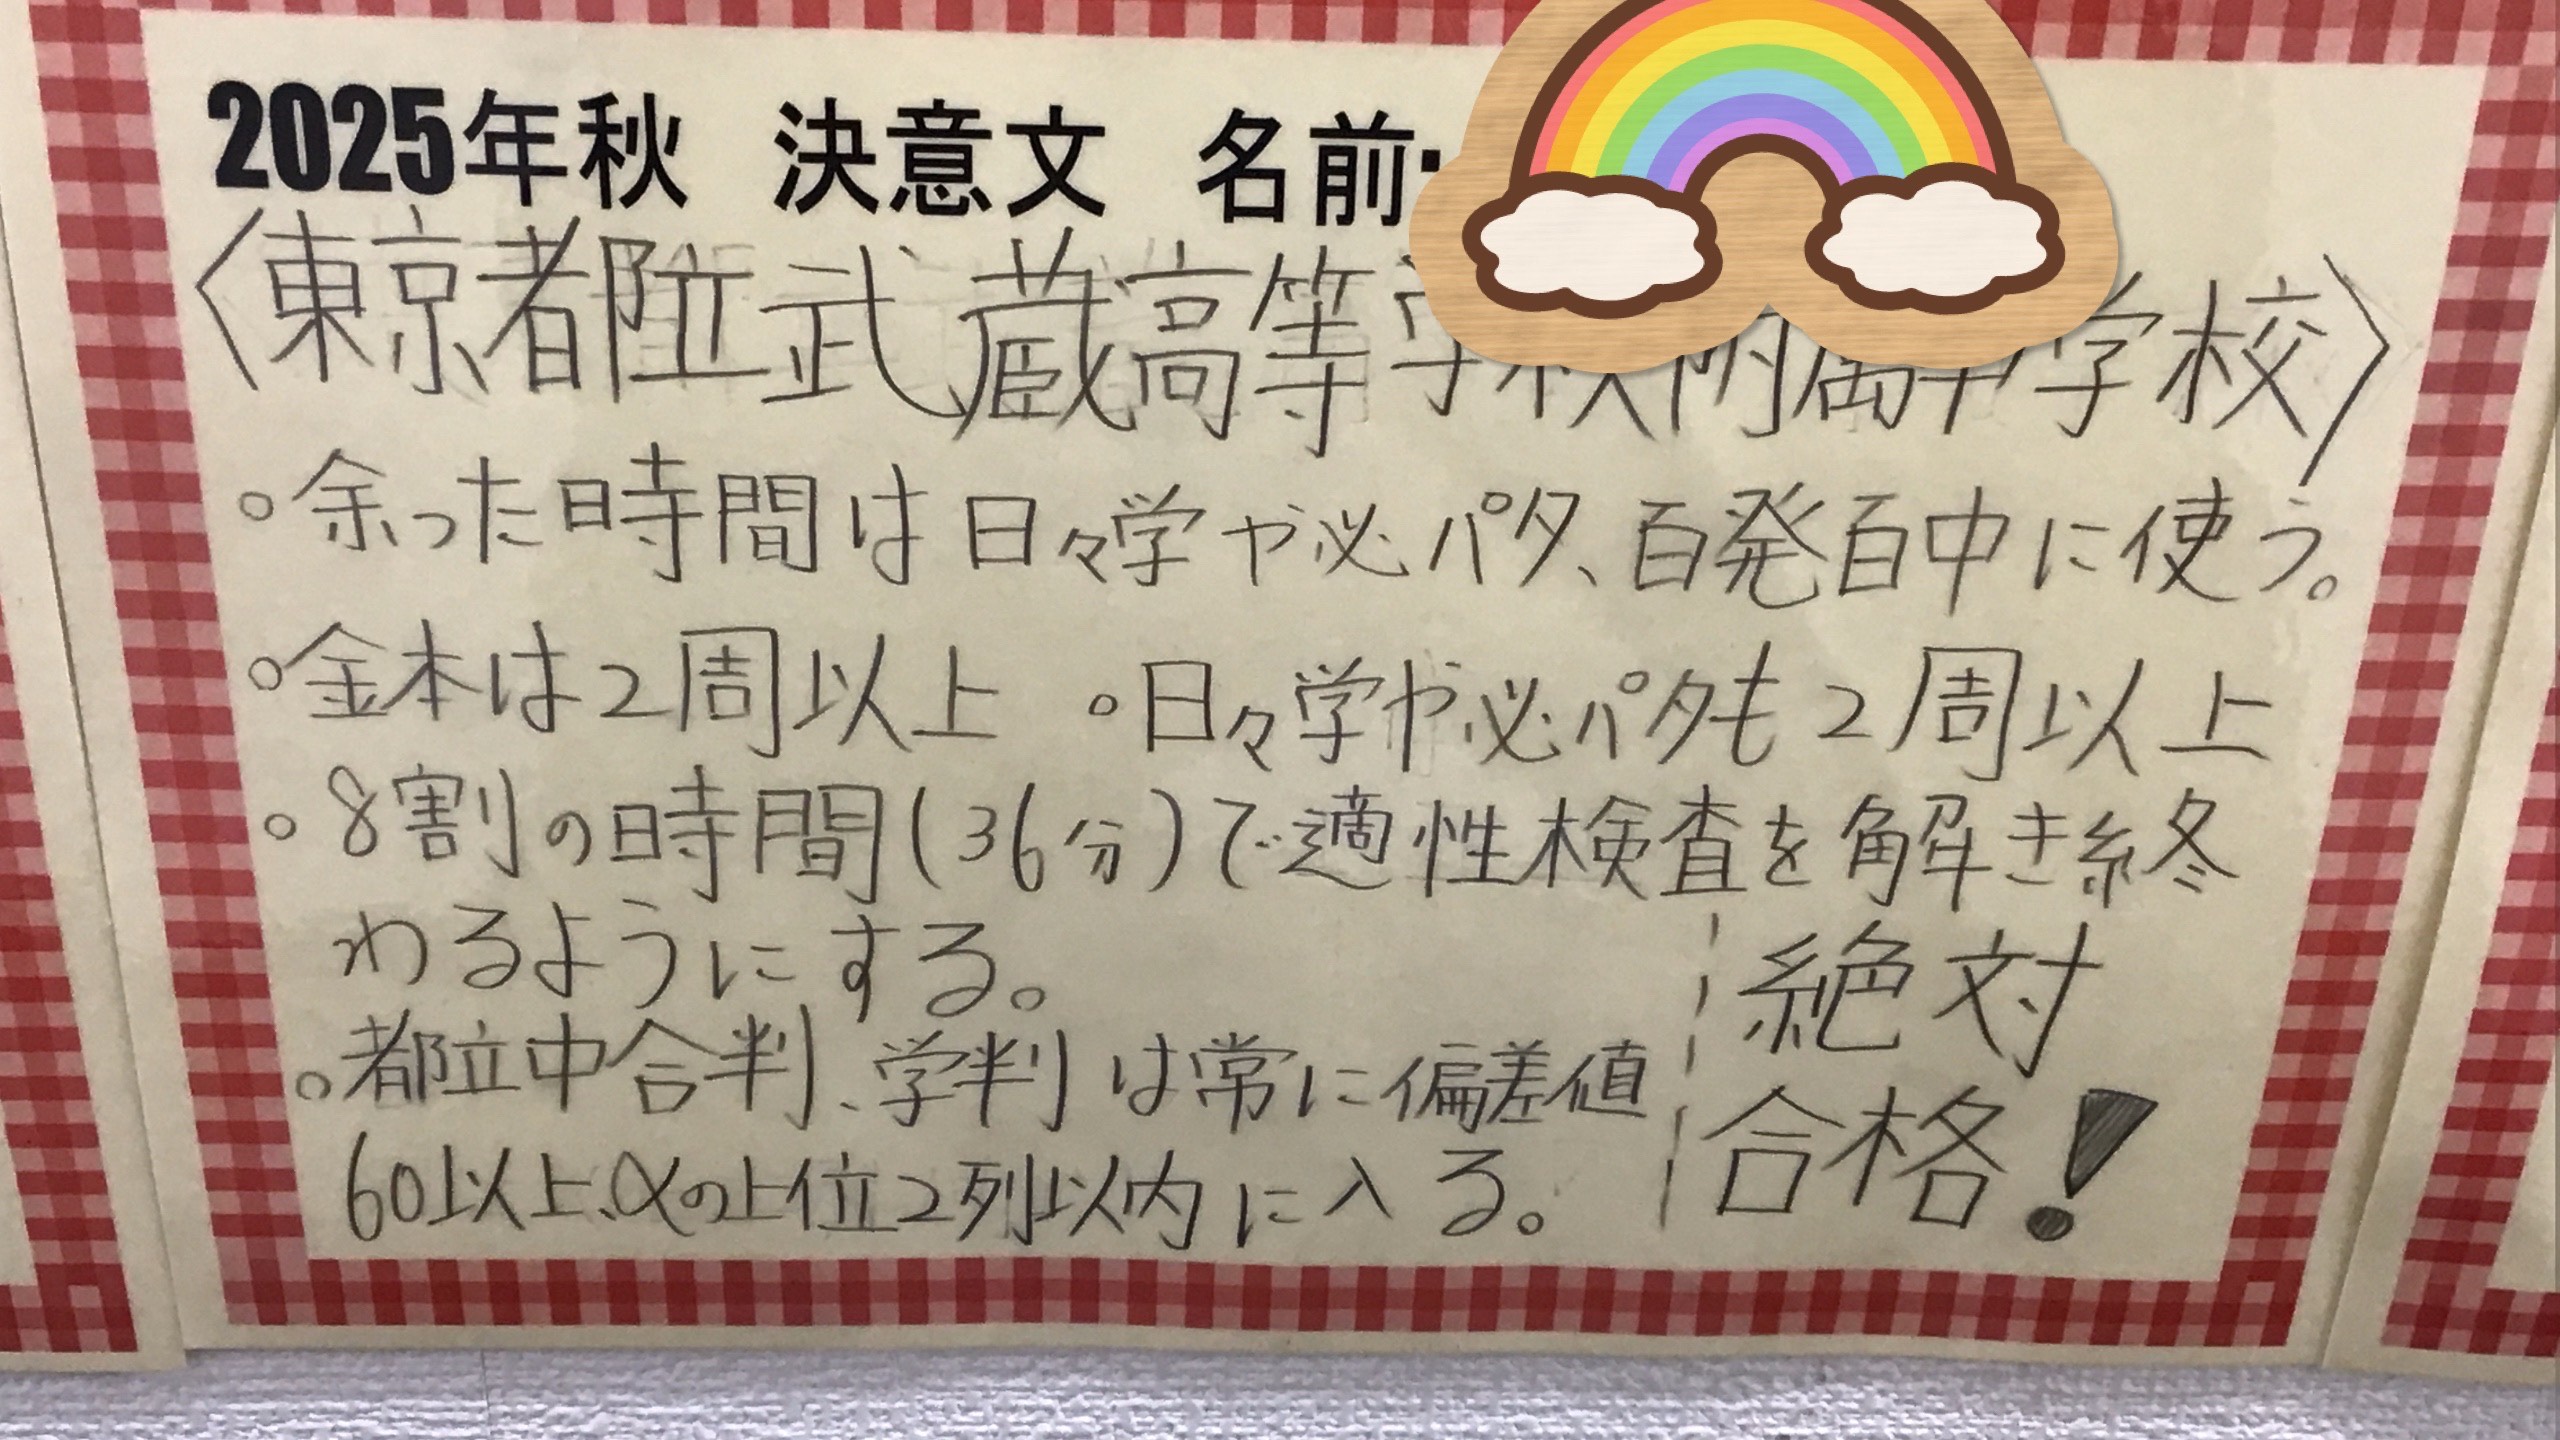 2025年秋 決意文 名前
〈東京都立武蔵高等学校附属中学校〉
。余った時間は日々学や必パタ、百発百中に使う。
。金本は2周以上 。日々学や必パタも2周以上
。8割の時間(36分)で適性検査を解き終
わるようにする。
。都立中合判、学判は常に偏差値
60以上、αの上位2列以内に入る。
絶対
合格!